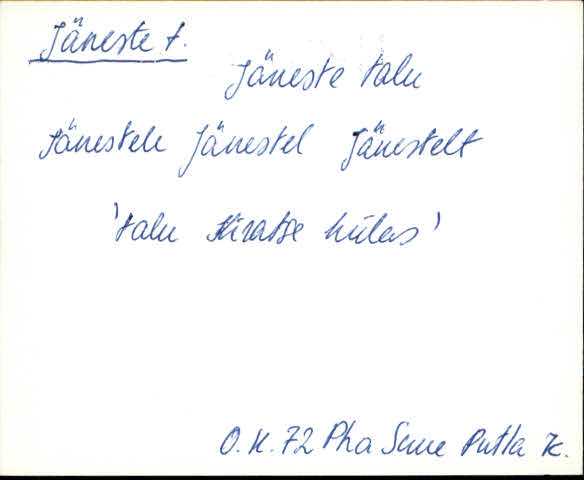 Jäneste t.
Jäneste talu
Jänestele Jänestel Jänestelt
'talu Hiratse külas'
O.K. 72 Pha Seme Putla k.